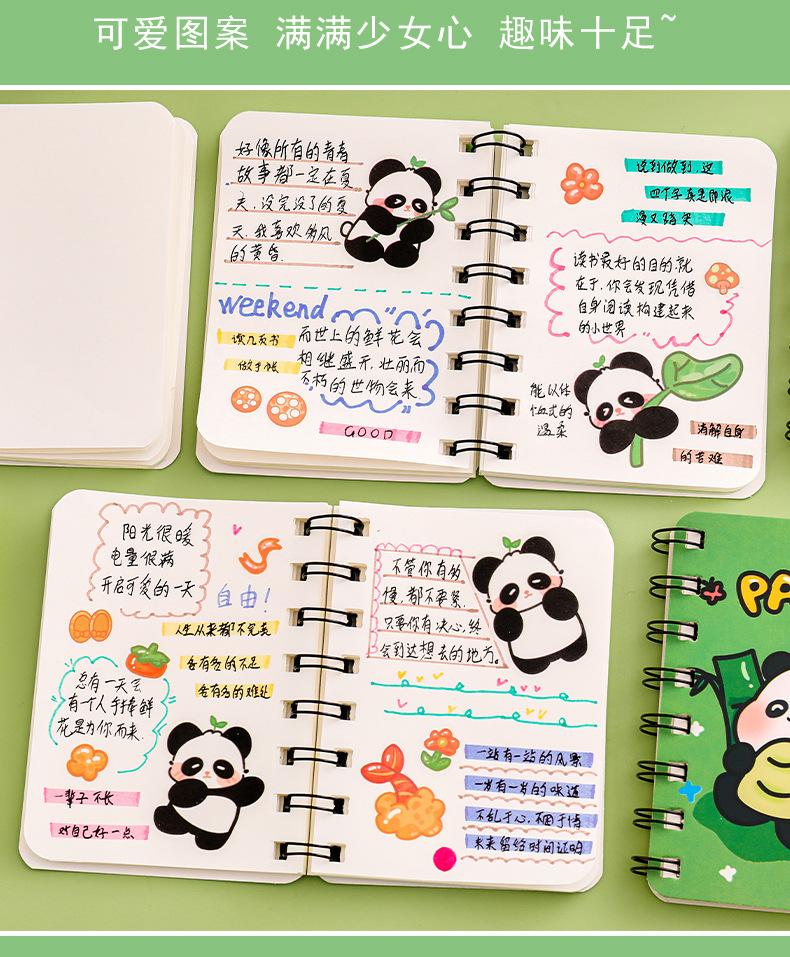 可爱图案 满满少女心 趣味十足~
好像所有的青春
故事都一定在夏
天,没完没了的夏
天,我喜欢弥风
的黄昏.
weekend
读几页书
做手帐
而世上的鲜花会
相继盛开,壮丽而
不朽的世物会来
GOOD
说到做到,这
四个字真是即浪
漫又踏实
读书最好的目的,就
在于,你会发现凭借
自身阅读构建起来
的小世界
能以
式的
温柔
消解自身
的苦难
阳光很暖
电量很满
开启可爱的一天
自由!
人生从来都不完美
各有各的不足
各有各的难处
总有一天会
有个人手捧鲜
花是为你而来.
一辈子不长
对自己好一点
不管你有多
慢,都不要紧.
只要你有决心,终
会到达想去的地方.
一站有一站的风景
一岁有一岁的味道
不乱于心,不困于情
未来留给时间证明
PA